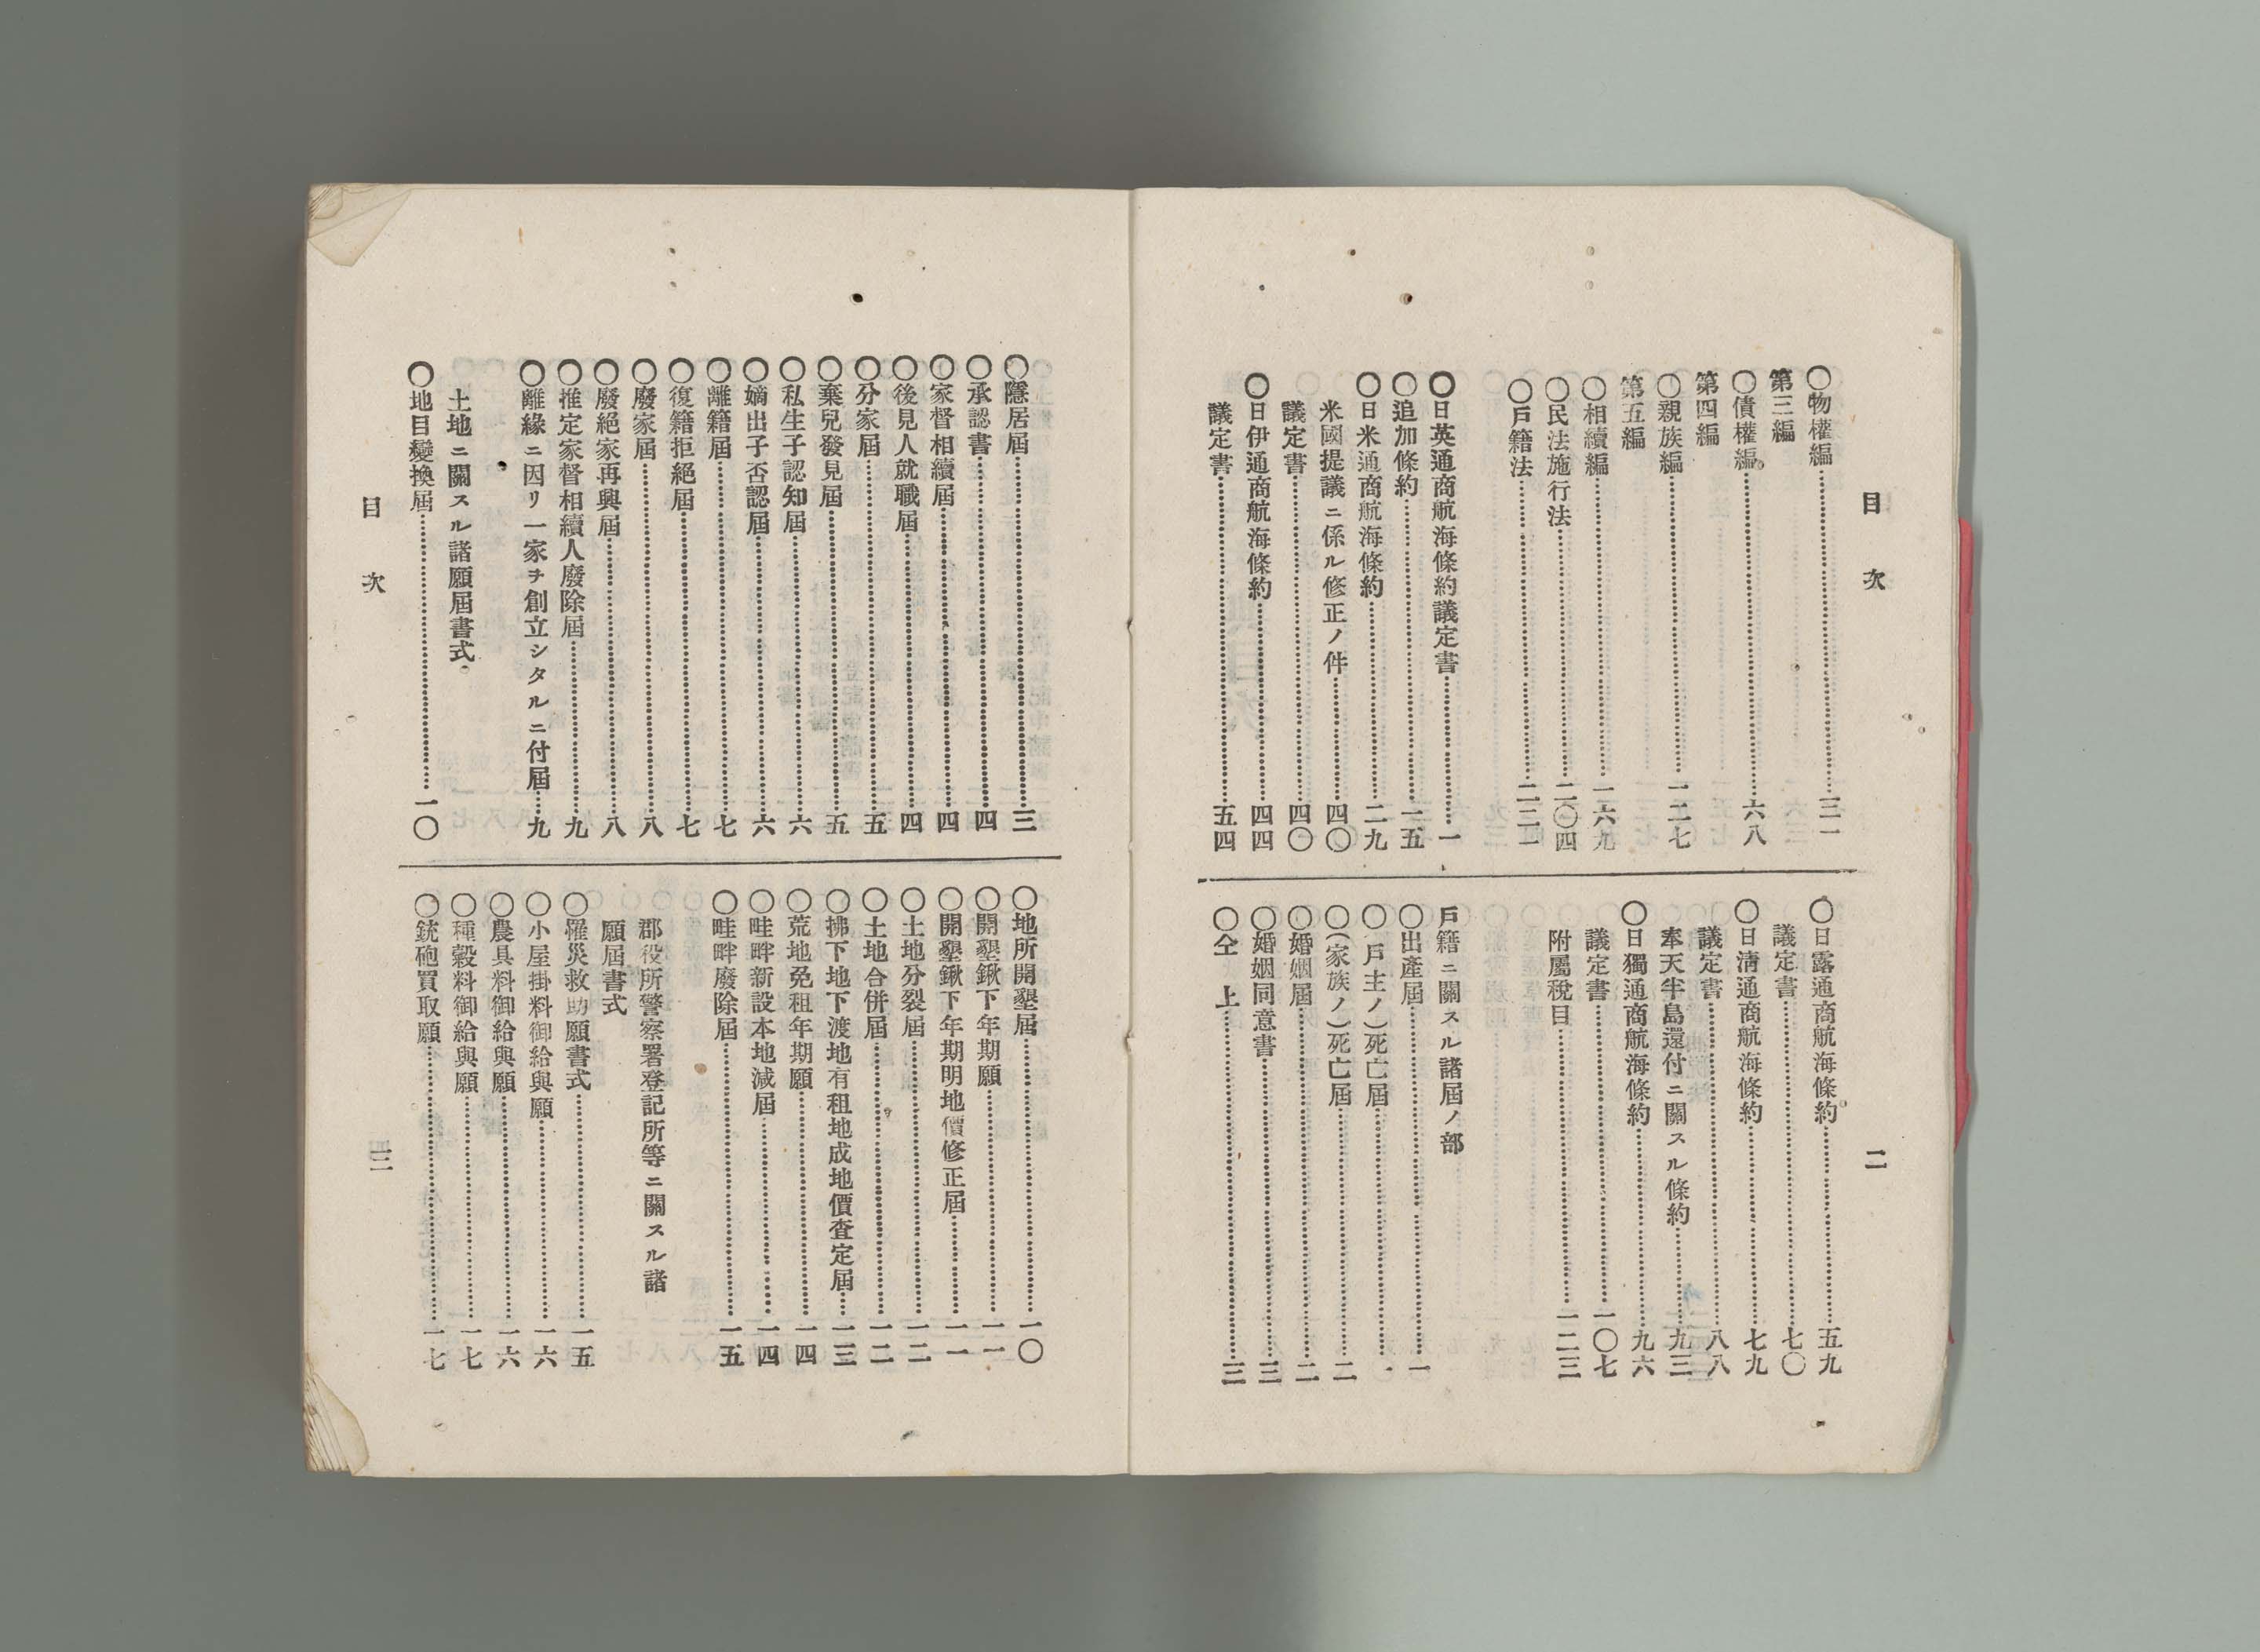 目次
二
○物權編……三一
第三編
○債權編……六八
第四編
○親族編……一二七
第五編
○相續編……一六九
○民法施行法……二〇四
○戶籍法……二二一
○日英通商航海條約議定書……一
○追加條約……一五
○日米通商航海條約……二九
米國提議ニ係ル修正ノ件……四〇
議定書……四〇
○日伊通商航海條約……四四
議定書……五四
○日露通商航海條約……五九
議定書……七〇
○日淸通商航海條約……七九
議定書……八八
奉天半島還付ニ關スル條約……九三
○日獨通商航海條約……九六
議定書……一〇七
附屬稅目……一二三
戶籍ニ關スル諸屆ノ部
○出產屆……一
○(戶主ノ)死亡屆……一
○(家族ノ)死亡屆……二
○婚姻屆……二
○婚姻同意書……三
○仝上……三
○隱居屆……三
○承認書……四
○家督相續屆……四
○後見人就職屆……四
○分家屆……五
○棄兒發見屆……五
○私生子認知屆……六
○嫡出子否認屆……六
○離籍屆……七
○復籍拒絕屆……七
○廢家屆……八
○廢絕家再興屆……八
○推定家督相續人廢除屆……九
○離緣ニ因リ一家ヲ創立シタルニ付屆……九
土地ニ關スル諸願屆書式。
○地目變換屆……一〇
○地所開墾屆……一〇
○開墾鍬下年期願……一一
○開墾鍬下年期明地價修正屆……一一
○土地分裂屆……一二
○土地合併屆……一二
○拂下地下渡地有租地成地價査定屆……一三
○荒地免租年期願……一四
○畦畔新設本地減屆……一四
○畦畔廢除屆……一五
郡役所警察署登記所等ニ關スル諸
願屆書式
○罹災救助願書式……一五
○小屋掛料御給與願……一六
○農具料御給與願……一六
○種穀料御給與願……一七
○銃砲買取願……一七
目次
三